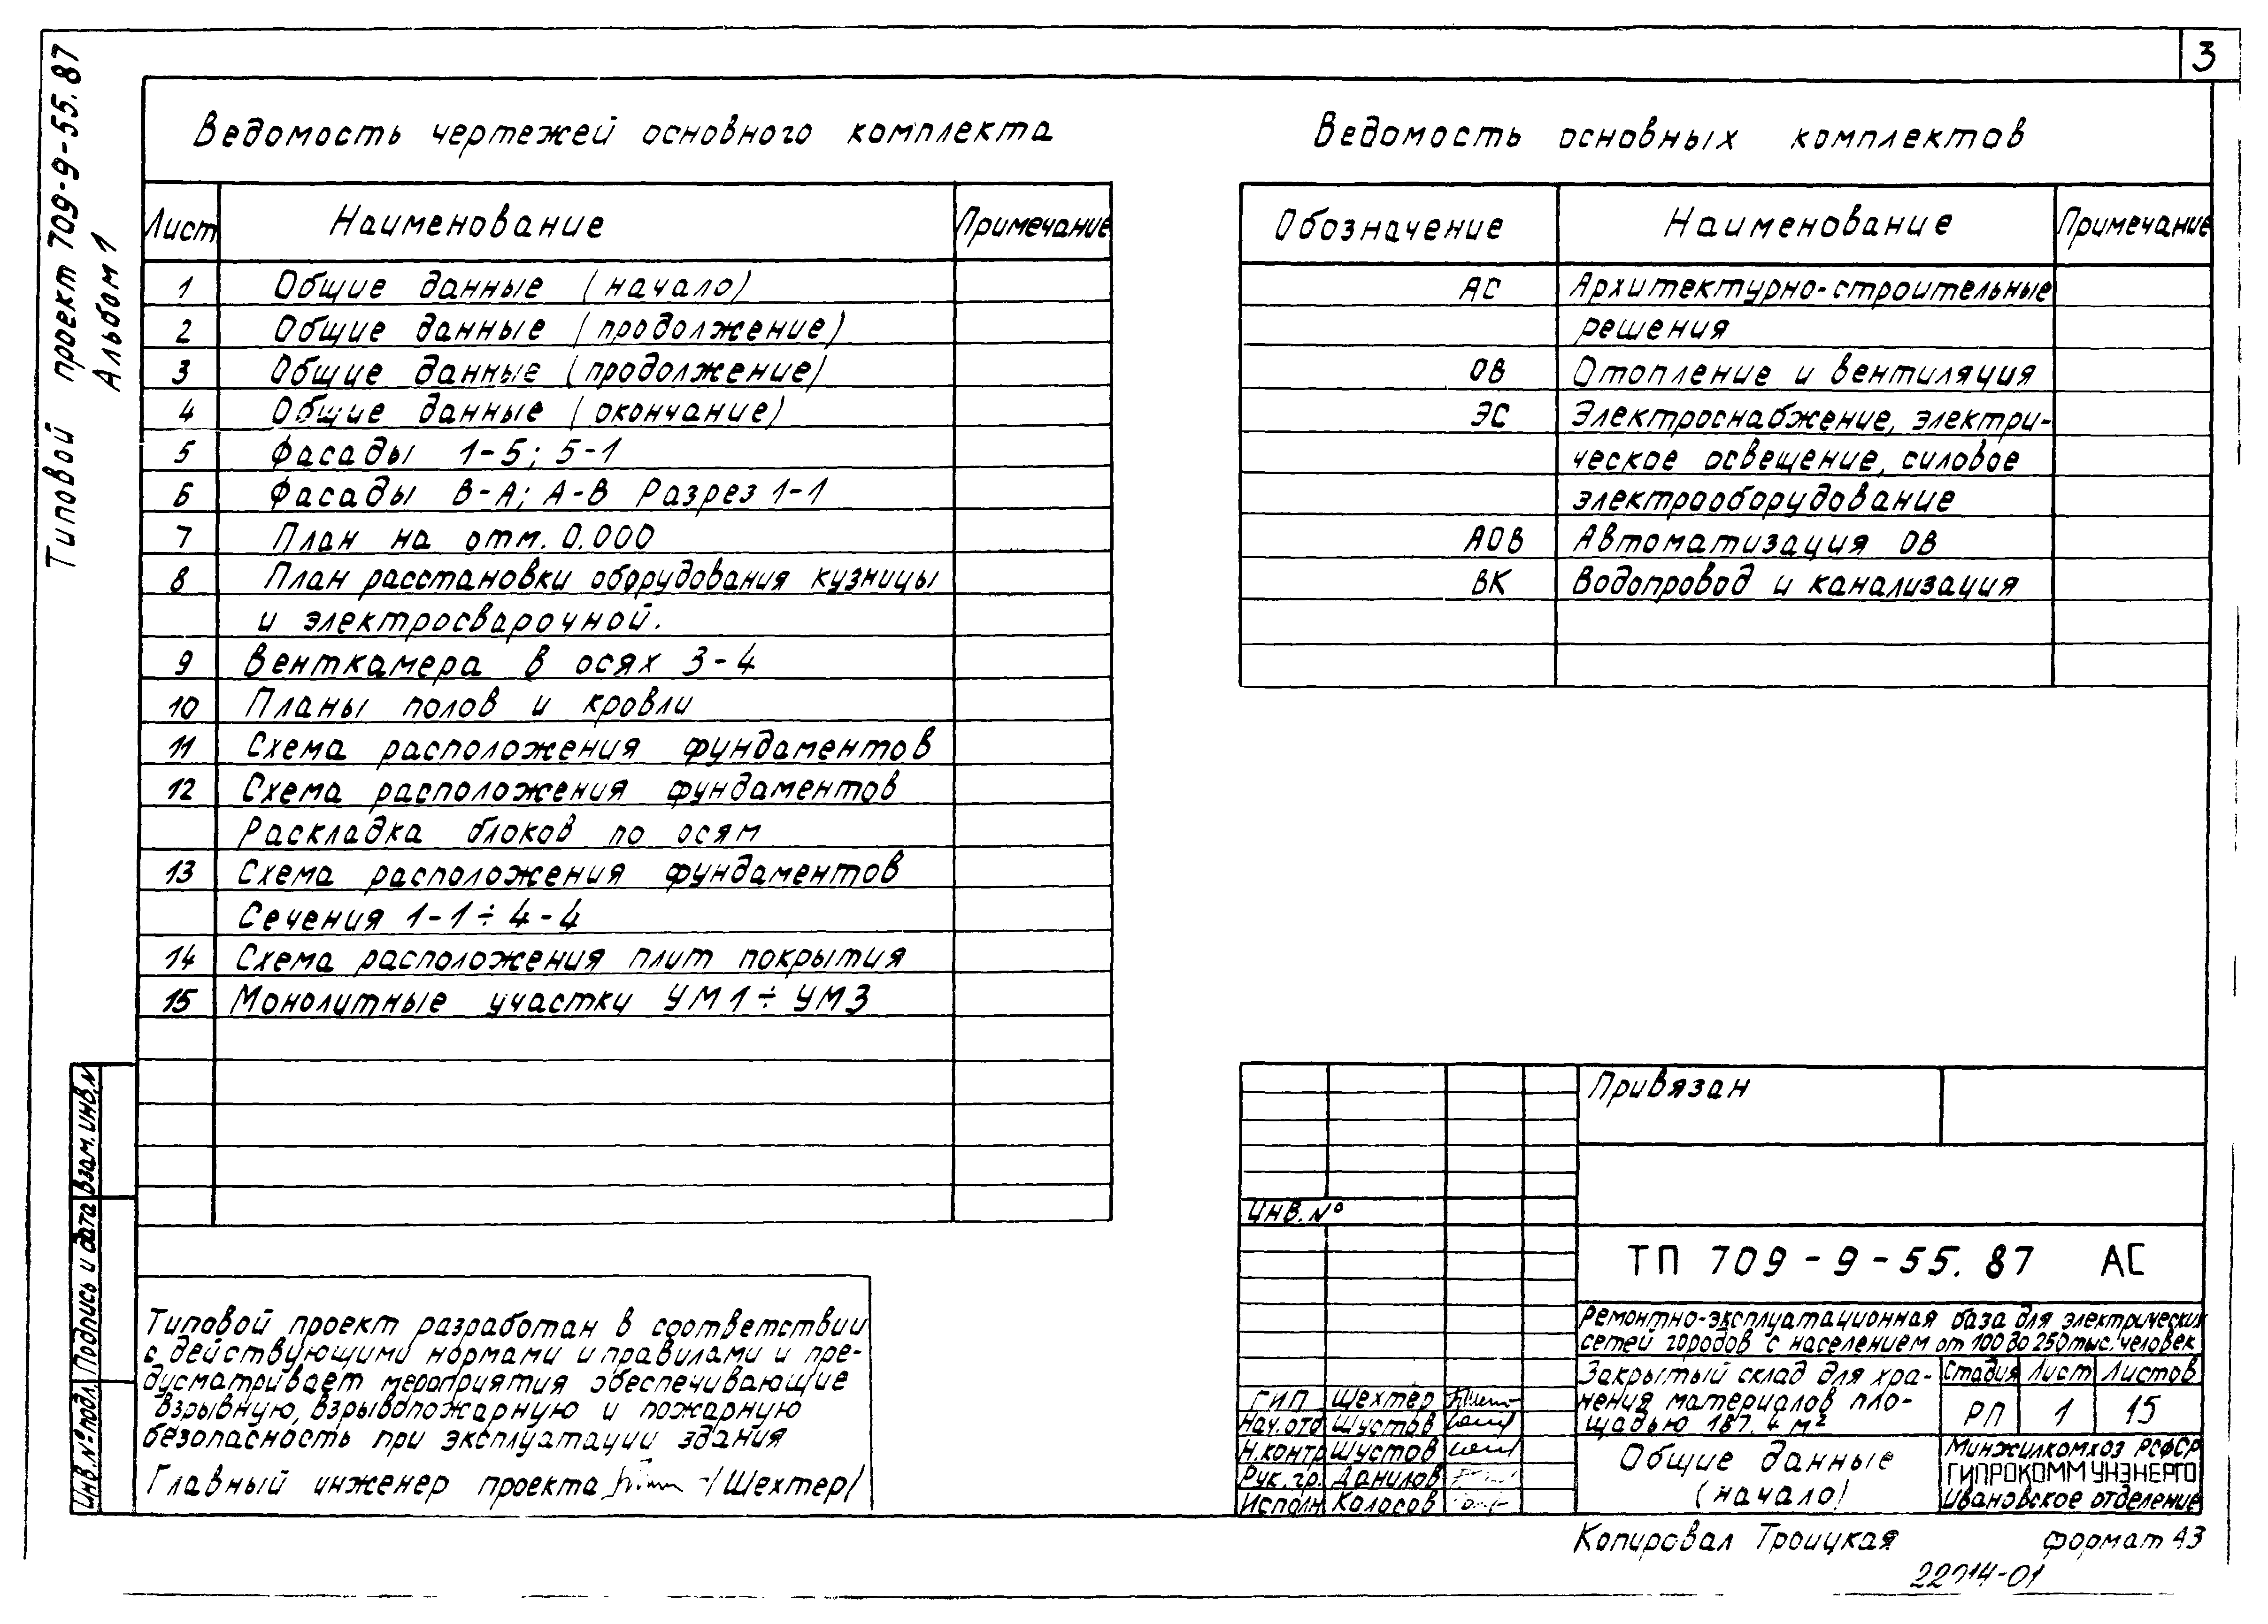 3
Типовой проект 709-9-55.87
Альбом 1
Ведомость чертежей основного комплекта
Лист Наименование Примечание
1 Общие данные (начало)
2 Общие данные (продолжение)
3 Общие данные (продолжение)
4 Общие данные (окончание)
5 Фасады 1-5; 5-1
6 Фасады В-А; А-В Разрез 1-1
7 План на отм. 0.000
8 План расстановки оборудования кузницы
и электросварочной.
9 Венткамера в осях 3-4
10 Планы полов и кровли
11 Схема расположения фундаментов
12 Схема расположения фундаментов
Раскладка блоков по осям
13 Схема расположения фундаментов
Сечения 1-1÷4-4
14 Схема расположения плит покрытия
15 Монолитные участки УМ1÷УМ3
Ведомость основных комплектов
Обозначение Наименование Примечание
АС Архитектурно-строительные
решения
ОВ Отопление и вентиляция
ЭС Электроснабжение, электри-
ческое освещение, силовое
электрооборудование
АОВ Автоматизация ОВ
ВК Водопровод и канализация
Взам. инв. №
Подпись и дата
Инв. № подл.
Типовой проект разработан в соответствии
с действующими нормами и правилами и пре-
дусматривает мероприятия обеспечивающие
взрывную, взрывопожарную и пожарную
безопасность при эксплуатации здания
Главный инженер проекта /Шехтер/
Привязан
Инв. №
ТП 709-9-55.87 АС
Ремонтно-эксплуатационная база для электрических
сетей городов с населением от 100 до 250 тыс. человек
Закрытый склад для хра-
нения материалов пло-
щадью 187.4 м²
Стадия Лист Листов
РП 1 15
ГИП Шехтер
Нач.отд Шустов
Н.контр Шустов
Рук. гр. Данилов
Исполн Колосов
Общие данные
(начало)
Минжилкомхоз РСФСР
ГИПРОКОММУНЭНЕРГО
Ивановское отделение
Копировал Троицкая формат А3
22014-01